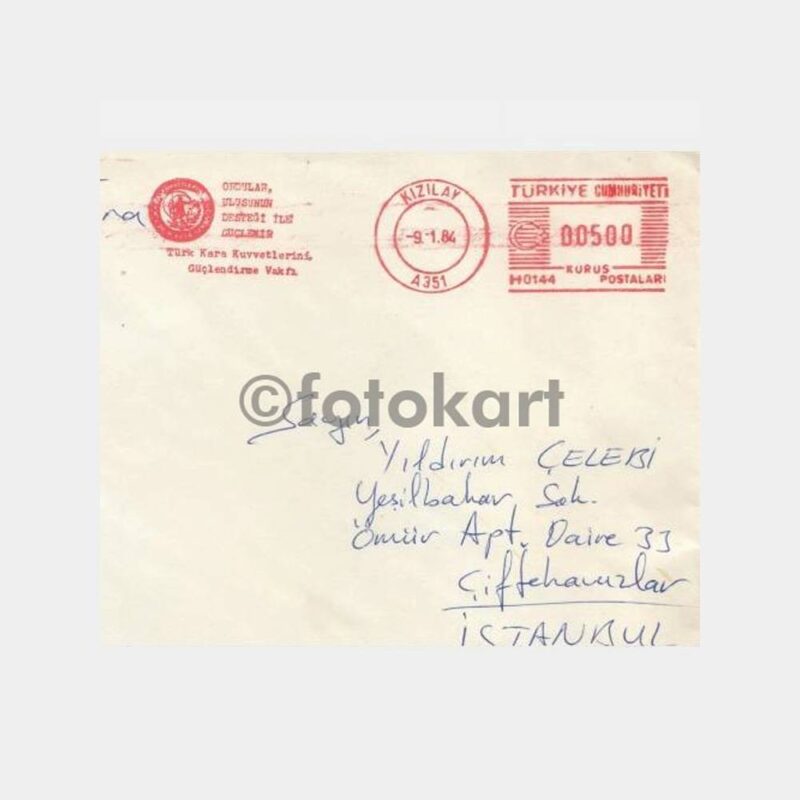 ORDULAR,
ULUSUNUN
DESTEĞİ İLE
GÜÇLENİR
Türk Kara Kuvvetlerini,
Güçlendirme Vakfı
KIZILAY
-9.1.84
A351
TÜRKİYE CUMHURİYETİ
00500
KURUŞ
H0144 POSTALARI
na
©fotokart
Sayın,
Yıldırım ÇELEBİ
Yeşilbahar Sok.
Ömür Apt. Daire 33
Çiftehavuzlar
İSTANBUL